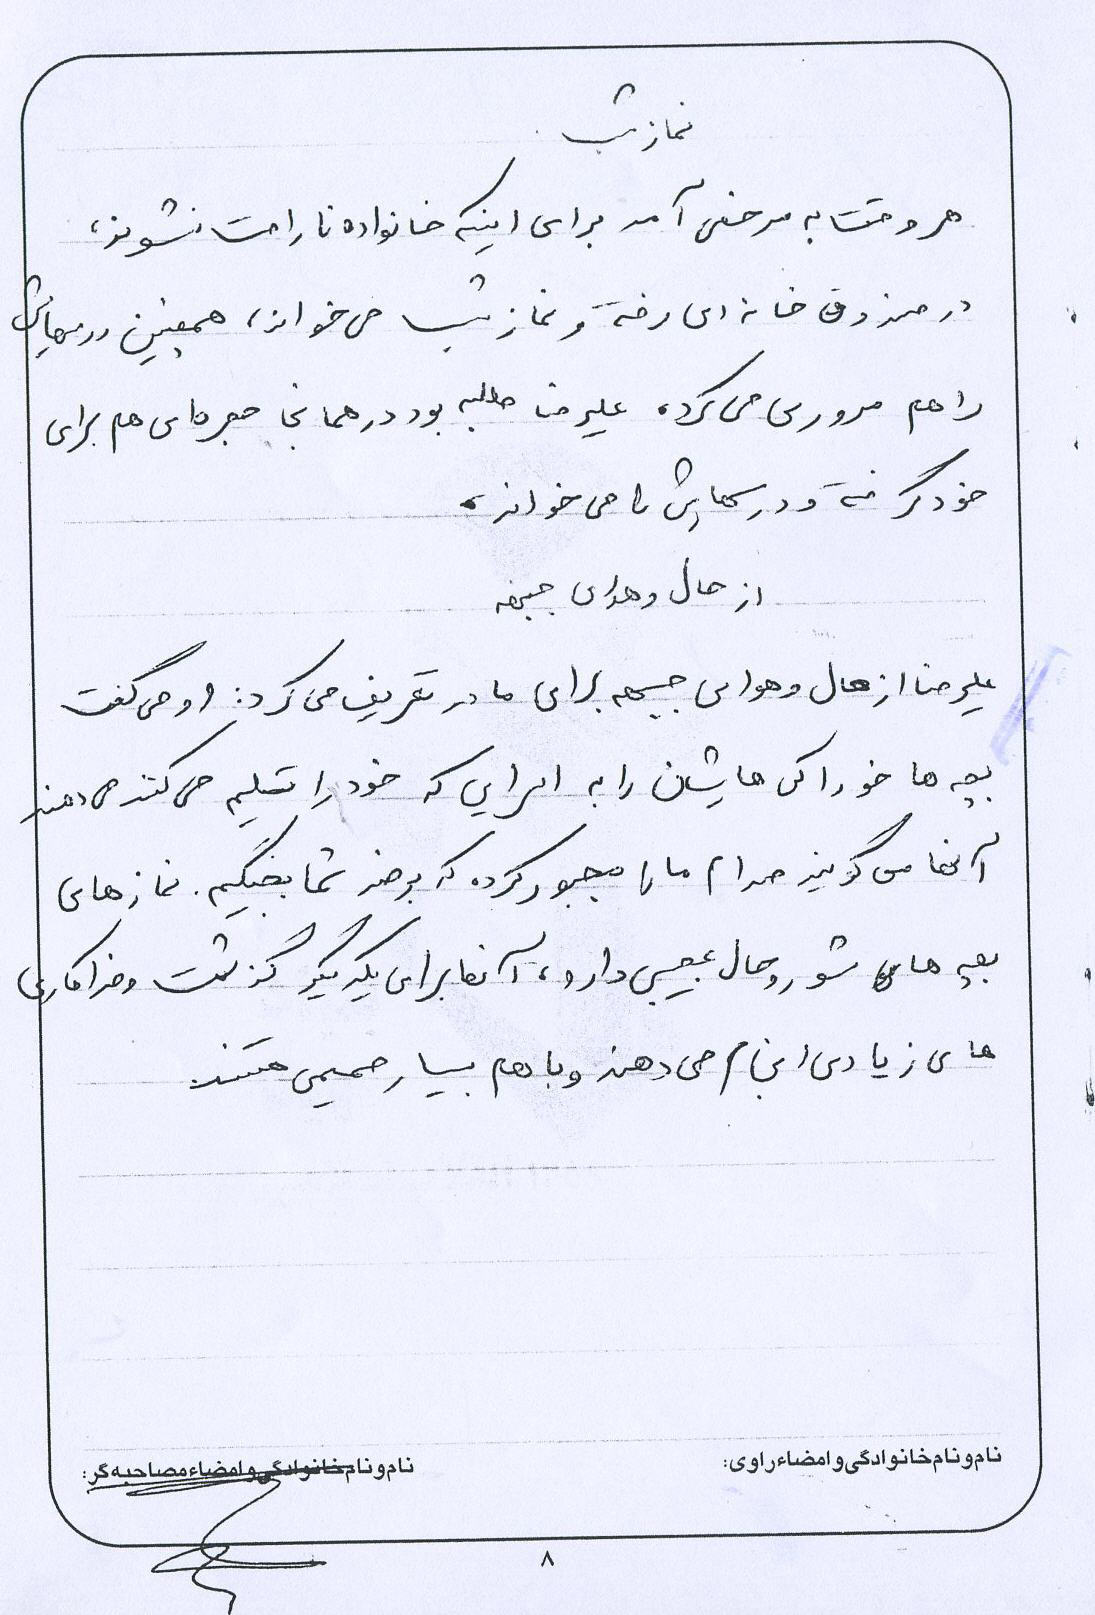 نماز شب
هر وقت به مرخصی آمد برای اینکه خانواده ناراحت نشوند،
در صندوق خانه ای رفته و نماز شب می خواند، همچنین درسهایش
را هم مروری می کرد، علیرضا طلبه بود در همانجا حجره ای هم برای
خود گرفته و درسهایش را می خواند،
از حال و هوای جبهه
علیرضا از حال و هوای جبهه برای مادر تعریف می کرد: او می گفت
بچه ها خوراکی هایشان را به اسرایی که خود را تسلیم می کنند می دهند
آنها می گویند صدام ما را مجبور کرده که بر ضد شما بجنگیم. نمازهای
بچه های شور و حال عجیبی دارد، آنها برای یکدیگر گذشت و فداکاری
های زیادی انجام می دهند و با هم بسیار صمیمی هستند.
نام و نام خانوادگی و امضاء راوی:
نام و نام خانوادگی و امضاء مصاحبه گر:
۸